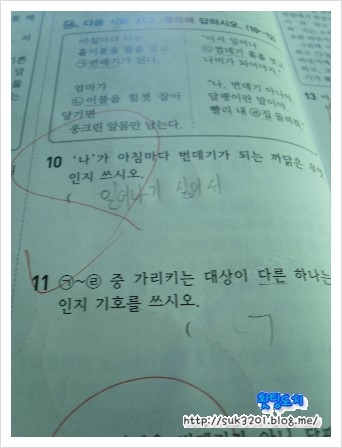 다음 시를 읽고 물음에 답하시오.
아침마다 나는
홑이불을 둘둘 말고
㉠번데기가 된다.
엄마가
㉡이불을 힘껏 잡아
당기면
웅크린 알몸만 남는다.
"어서 일어나
㉢번데기 홑죽 벗고
나비가 되어야지."
"나, 번데기 아니야
달팽이란 말이야.
빨리 내 ㉣집 돌려줘."
10 '나'가 아침마다 번데기가 되는 까닭은 무엇
인지 쓰시오.
( 일어나기 싫어서
11 ㉠~㉣ 중 가리키는 대상이 다른 하나는
인지 기호를 쓰시오.
( ㄴㄱ
횟팅도치
http://suk3201.blog.me/